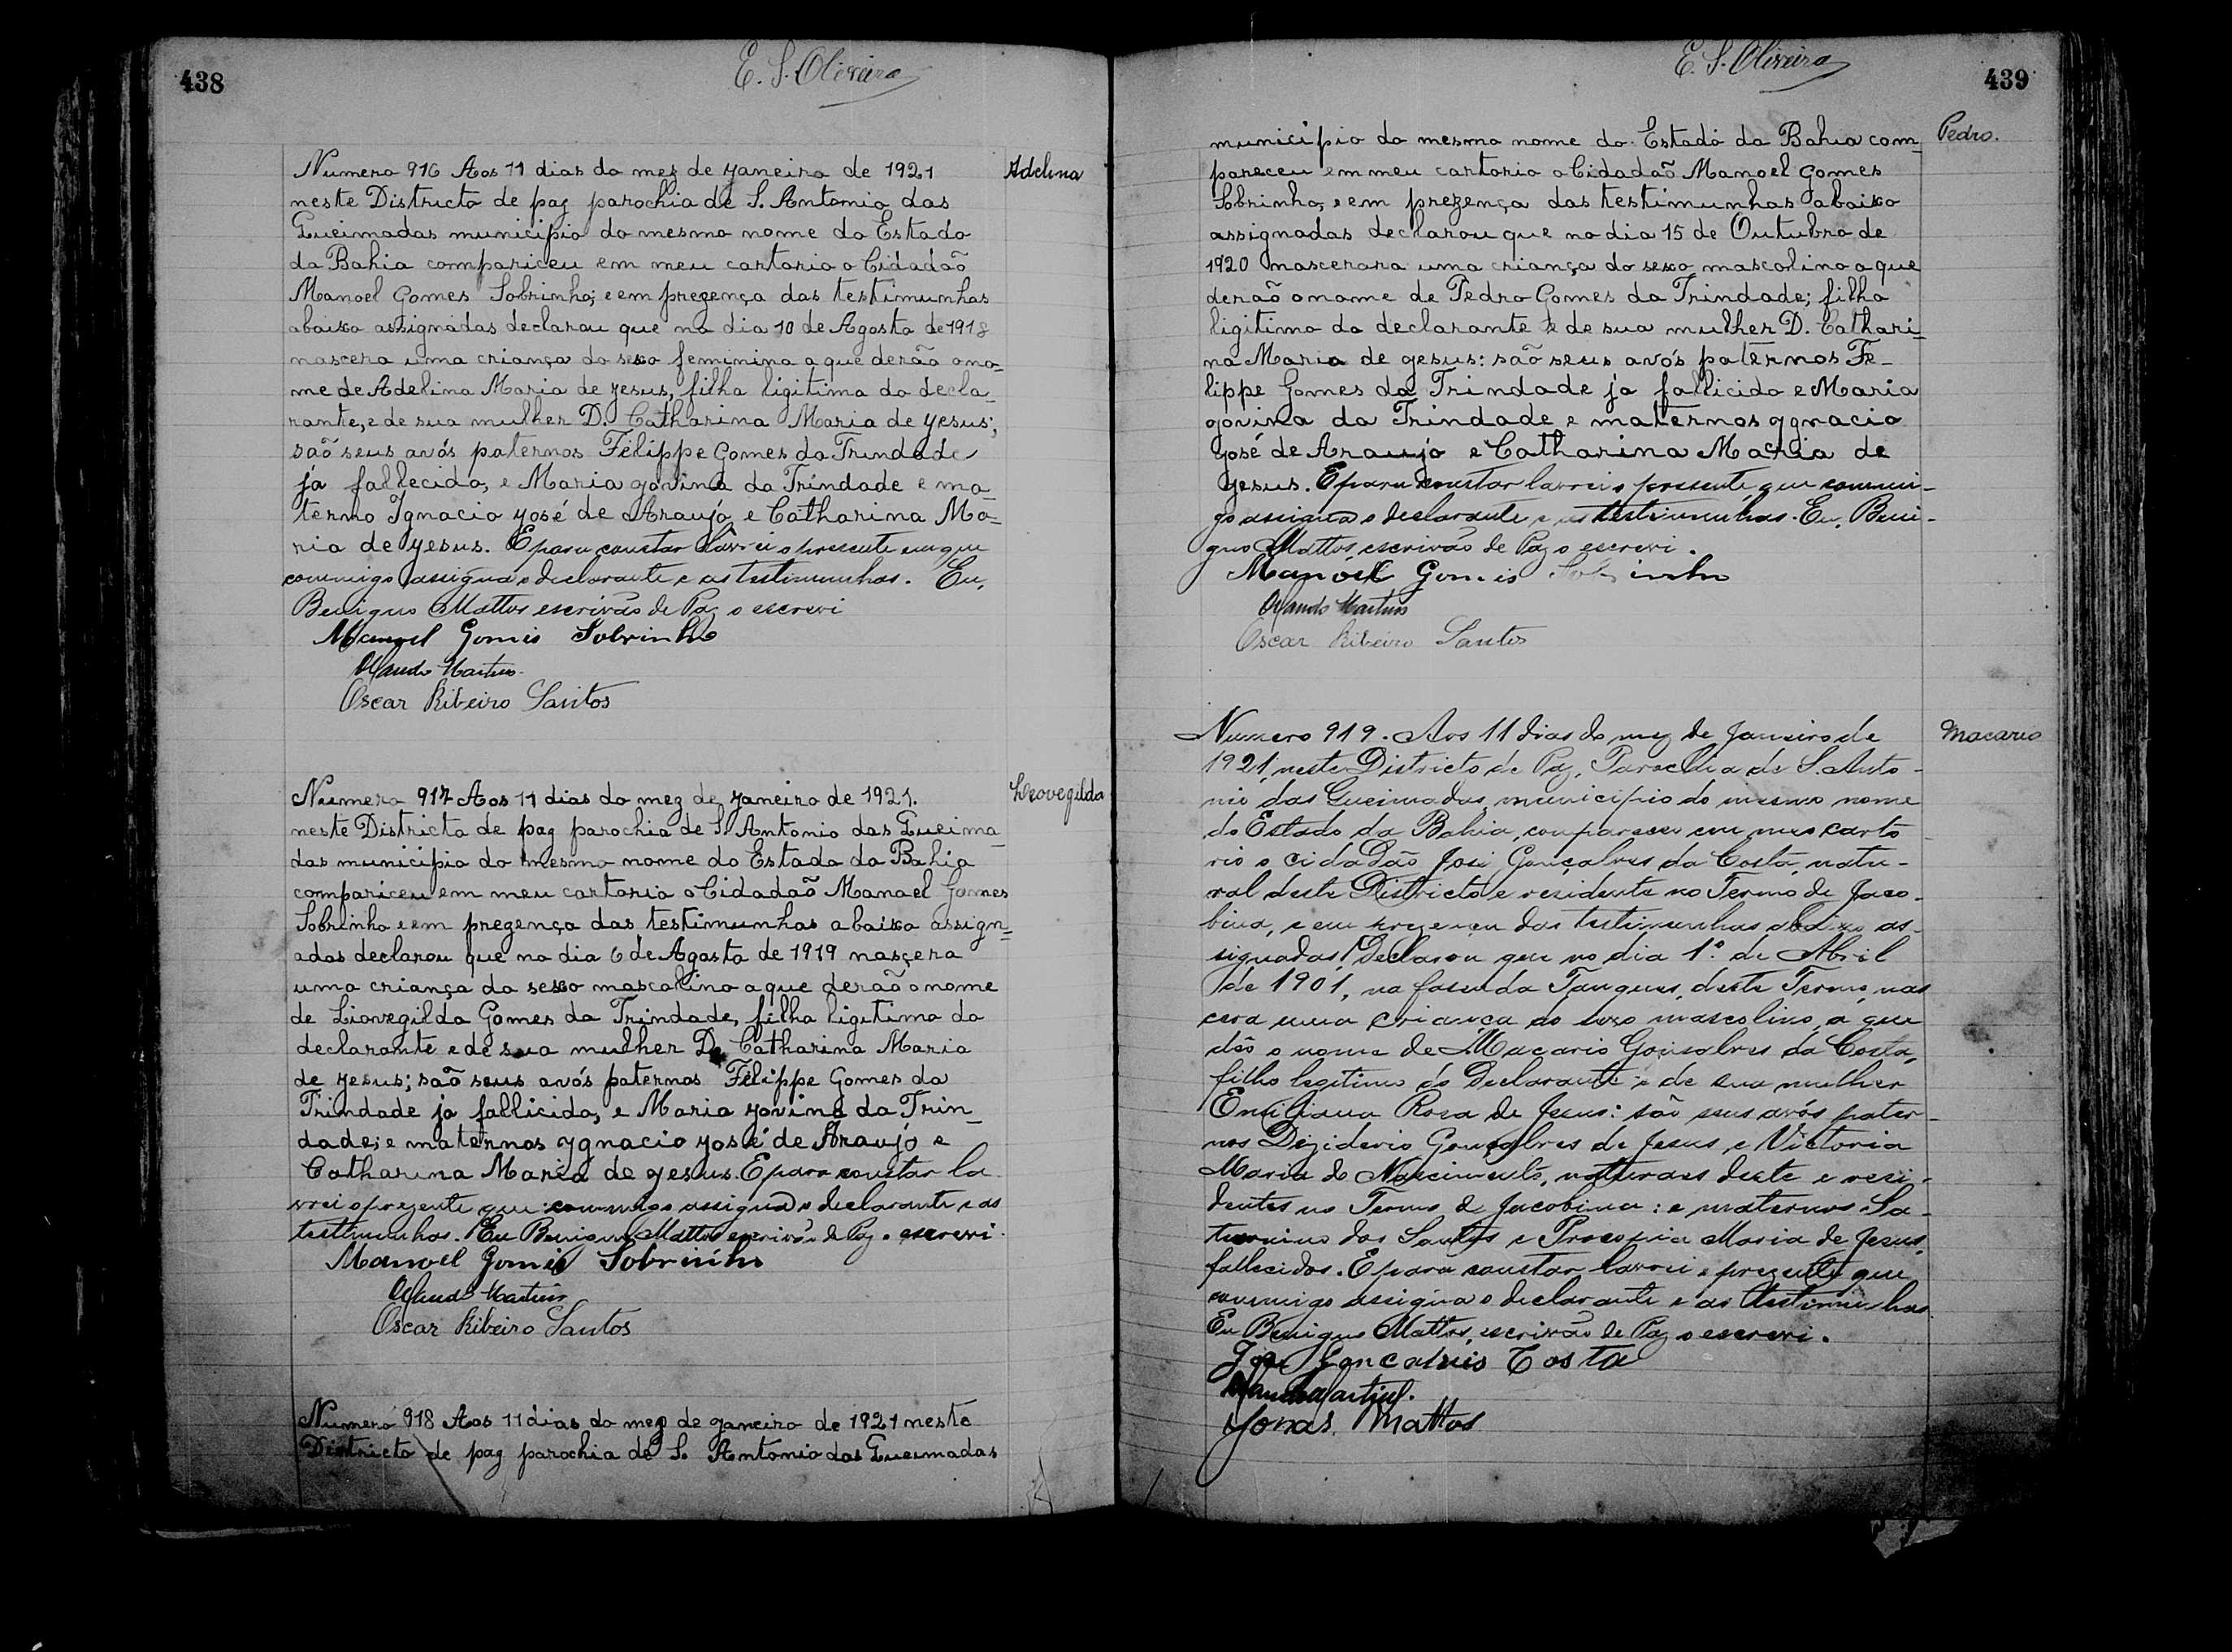 438
E. S. Oliveira
Numero 916 Aos 11 dias do mez de yaneiro de 1921
Adelina
neste Districto de paz parochia de S. Antonio das
Queimadas municipio do mesmo nome do Estado
da Bahia compariceu em meu cartorio o Cidadaõ
Manoel Gomes Sobrinho; e em prezença das testimunhas
abaixo assignadas declarou que no dia 10 de Agosto de 1918
nascera uma criança do sexo feminino a que derão o no-
me de Adelina Maria de yesus, filha ligitima do decla-
rante, e de sua mulher D. Catharina Maria de yesus;
saõ seus avós paternos Felippe Gomes da Trindade
já fallecido, e Maria yovina da Trindade e ma-
terno Ignacio yosé de Araujo e Catharina Ma-
ria de yesus. E para constar lavrei o presente em que
commigo assigna o declarante e as testimunhas. Eu,
Benigno Mattos escrivão de Paz o escrevi
Manoel Gomis Sobrinho
Orlando Martins
Oscar Ribeiro Santos
Numero 917 Aos 11 dias do mez de yaneiro de 1921.
Leovegildo
neste Districto de paz parochia de S. Antonio das Queima-
das municipio do mesmo nome do Estado da Bahia
compariceu em meu cartorio o Cidadaõ Manoel Gomes
Sobrinho e em prezença das testimunhas abaixo assign-
adas declarou que no dia 6 de Agosto de 1919 nascera
uma criança do sexo mascolino a que derão o nome
de Liovegildo Gomes da Trindade, filho ligitimo do
declarante e de sua mulher D. Catharina Maria
de yesus; saõ seus avós paternos Felippe Gomes da
Trindade ja fallicido, e Maria yovina da Trin-
dade; e maternos ygnacio yosé de Araujo e
Catharina Maria de yesus. E para constar la-
vrei o prezente que commigo assigna o declarante e as
testimunhas. Eu Benigno Mattos escrivão de Paz o escrevi.
Manoel Gomis Sobrinho
Orlando Martins
Oscar Ribeiro Santos
Numero 918 Aos 11 dias do mez de yaneiro de 1921 neste
Districto de paz parochia de S. Antonio das Queimadas
439
E. S. Oliveira
municipio do mesmo nome do Estado da Bahia com-
Pedro.
pareceu em meu cartorio o Cidadaõ Manoel Gomes
Sobrinho, e em prezença das testimunhas abaixo
assignadas declarou que no dia 15 de Outubro de
1920 nascerara uma criança do sexo mascolino a que
derão o nome de Pedro Gomes da Trindade; filho
ligitimo do declarante e de sua mulher D. Cathari-
na Maria de yesus: são seus avós paternos Fe-
lippe Gomes da Trindade ja fallicido e Maria
yovina da Trindade e maternos ygnacio
yosé de Araujo e Catharina Maria de
yesus. E para constar lavrei o presente que commi-
go assigna o declarante e as testimunhas. Eu, Beni-
gno Mattos, escrivão de Paz o escrevi.
Manoel Gomis Sobrinho
Orlando Martins
Oscar Ribeiro Santos
Numero 919. Aos 11 dias do mez de Janeiro de
Macario
1921, neste Districto de Paz, Parochia de S. Anto-
nio das Queimadas, municipio do mesmo nome
do Estado da Bahia, compareceu em meu carto-
rio o cidadão José Gonçalves da Costa, natu-
ral deste Districto e residente no Termo de Jaco-
bina, e em prezença das testimunhas abaixo as-
signadas, declarou que no dia 1º de Abril
de 1901, na fazenda Tanques, deste Termo, nas
cera uma criança do sexo mascolino, a que
dão o nome de Macario Gonsalves da Costa,
filho legitimo do Declarante e de sua mulher
Emiliana Rosa de Jesus: são seus avós pater-
nos Deziderio Gonçalves de Jesus e Victoria
Maria do Nascimento, naturaes deste e resi-
dentes no Termo de Jacobina: e maternos Sa-
turnino dos Santos e Procopia Maria de Jesus,
fallecidos. E para constar lavrei o prezente que
commigo assigna o declarante e as testimunhas
Eu Benigno Mattos, escrivão de Paz o escrevi.
José Goncalvis Costa
Orlando Martins.
Yonas Mattos